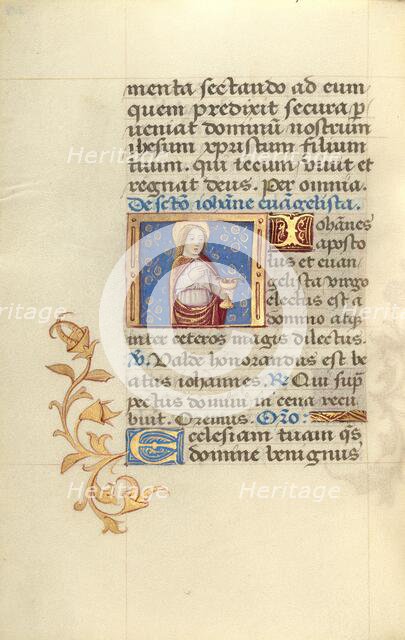 menta sectando ad eum
quem predixit secura p
ueniat dominū nostrum
ihesum xpristum filium
tuum. qui tecum viuit et
regnat deus. Per omnia.
De scto iohāne euāngelista.
Iohānes
aposto
lus et euan
gelista uirgo
electus est a
domino atqȝ
inter ceteros magis dilectus.
V. Valde honorandus est be
atus iohannes. R. Qui sup
pectus domini in cena recu
buit. Oremus. Oro.
Ecclesiam tuam qs
domine benignus
Heritage
Heritage
Heritage
Heritage
Heritage
Heritage